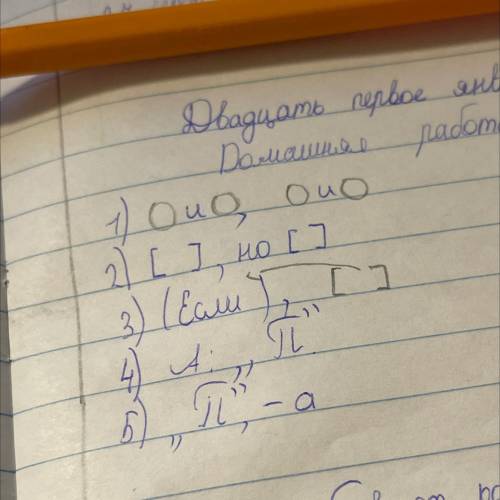 Двадцать первое янв
Домашняя работ
1) О и О, О и О
2) [ ], но [ ]
3) (Если), [ ]
4) А: „П“.
5) „П“, – а